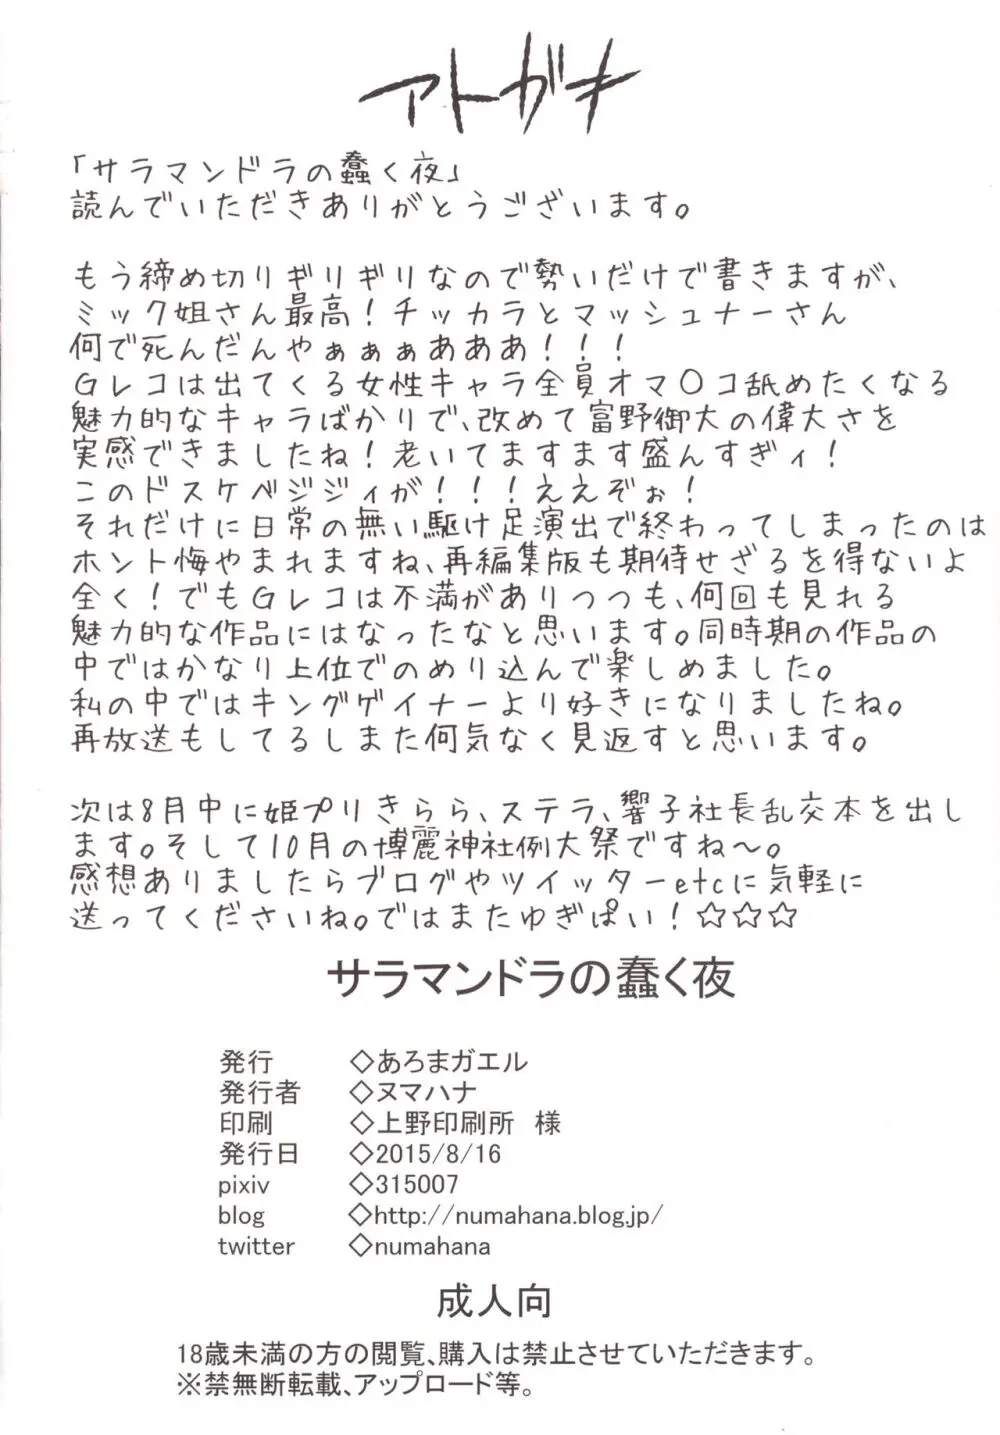 アトガキ
「サラマンドラの蠢く夜」
読んでいただきありがとうございます。
もう締め切りギリギリなので勢いだけで書きますが、
ミック姐さん最高！チッカラとマッシュナーさん
何で死んだんやぁぁぁあああ！！！
Gレコは出てくる女性キャラ全員オマ〇コ舐めたくなる
魅力的なキャラばかりで、改めて富野御大の偉大さを
実感できましたね！老いてますます盛んすぎィ！
このドスケベジジィが！！！ええぞぉ！
それだけに日常の無い駆け足演出で終わってしまったのは
ホント悔やまれますね、再編集版も期待せざるを得ないよ
全く！でもGレコは不満がありつつも、何回も見れる
魅力的な作品にはなったなと思います。同時期の作品の
中ではかなり上位でのめり込んで楽しめました。
私の中ではキングゲイナーより好きになりましたね。
再放送もしてるしまた何気なく見返すと思います。
次は8月中に姫プリきらら、ステラ、響子社長乱交本を出し
ます。そして10月の博麗神社例大祭ですね〜。
感想ありましたらブログやツイッターetcに気軽に
送ってくださいね。ではまたゆぎぱい！☆☆☆
サラマンドラの蠢く夜
発行 ◇あろまガエル
発行者 ◇ヌマハナ
印刷 ◇上野印刷所 様
発行日 ◇2015/8/16
pixiv ◇315007
blog ◇http://numahana.blog.jp/
twitter ◇numahana
成人向
18歳未満の方の閲覧、購入は禁止させていただきます。
※禁無断転載、アップロード等。